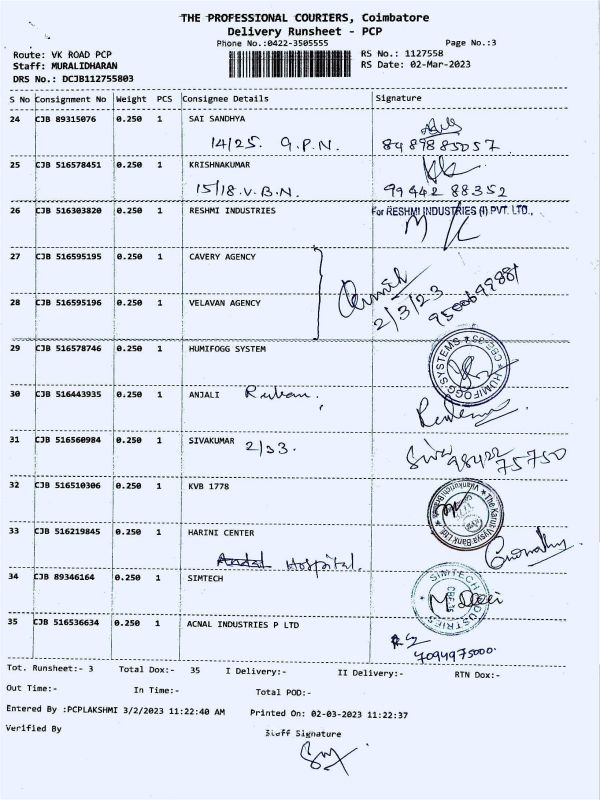 THE PROFESSIONAL COURIERS, Coimbatore
Delivery Runsheet - PCP
Phone No.:0422-3505555 Page No.:3
Route: VK ROAD PCP RS No.: 1127558
Staff: MURALIDHARAN RS Date: 02-Mar-2023
DRS No.: DCJB112755803
S No Consignment No Weight PCS Consignee Details Signature
24 CJB 89315076 0.250 1 SAI SANDHYA
14/25. G.P.N. 8489885057
25 CJB 516578451 0.250 1 KRISHNAKUMAR
15/18.V.B.N. 99442 88352
26 CJB 516303820 0.250 1 RESHMI INDUSTRIES For RESHMI INDUSTRIES (I) PVT. LTD.,
27 CJB 516595195 0.250 1 CAVERY AGENCY
2/3/23
28 CJB 516595196 0.250 1 VELAVAN AGENCY
29 CJB 516578746 0.250 1 HUMIFOGG SYSTEM HUMIFOGG SYSTEMS
30 CJB 516443935 0.250 1 ANJALI
31 CJB 516560984 0.250 1 SIVAKUMAR 2/33. Siva 98422 75750
32 CJB 516510306 0.250 1 KVB 1778 The Karur Vysya Bank Ltd.
33 CJB 516219845 0.250 1 HARINI CENTER
Hospital.
34 CJB 89346164 0.250 1 SIMTECH SIMTECH INDUSTRIES
35 CJB 516536634 0.250 1 ACNAL INDUSTRIES P LTD
7094975000.
Tot. Runsheet:- 3 Total Dox:- 35 I Delivery:- II Delivery:- RTN Dox:-
Out Time:- In Time:- Total POD:-
Entered By :PCPLAKSHMI 3/2/2023 11:22:40 AM Printed On: 02-03-2023 11:22:37
Verified By Staff Signature